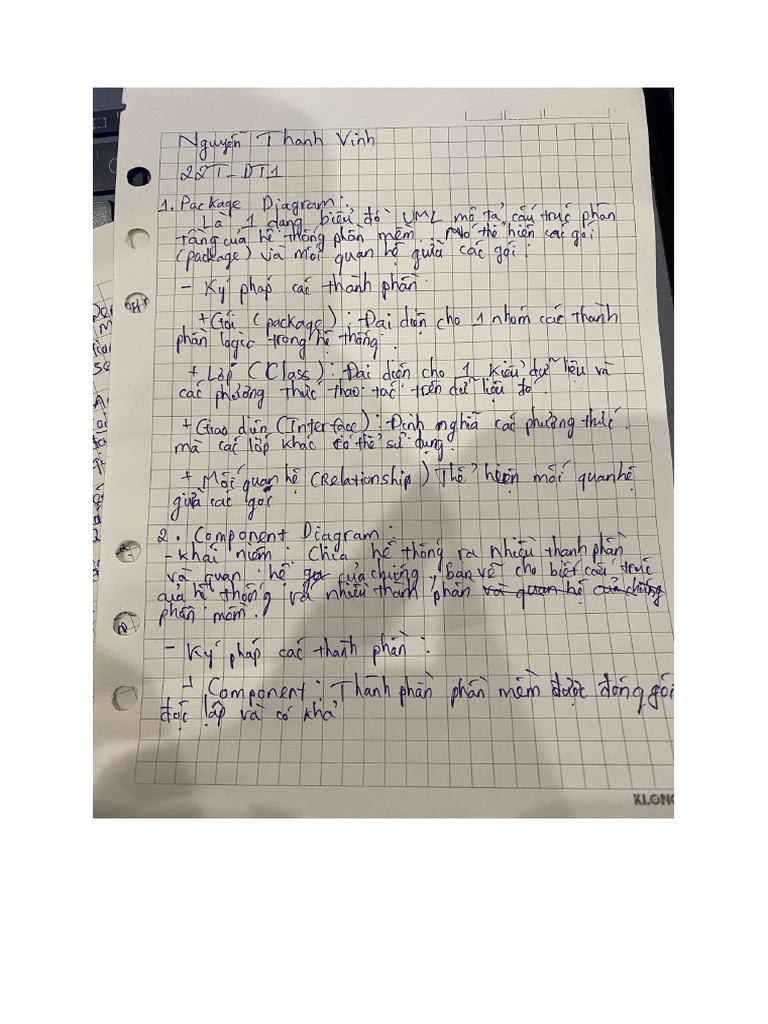 Nguyễn Thanh Vinh
22T-DT1
1. Package Diagram:
Là 1 dạng biểu đồ UML mô tả cấu trúc phân
tầng của hệ thống phần mềm. Nó thể hiện các gói
(package) và mối quan hệ giữa các gói.
- Ký pháp các thành phần.
+ Gói (package): Đại diện cho 1 nhóm các thành
phần logic trong hệ thống.
+ Lớp (Class): Đại diện cho 1 kiểu dữ liệu và
các phương thức thao tác trên dữ liệu đó.
+ Giao diện (Interface): Định nghĩa các phương thức.
mà các lớp khác có thể sử dụng.
+ Mối quan hệ (Relationship) Thể hiện mối quan hệ
giữa các gói
2. Component Diagram:
- Khái niệm: Chia hệ thống ra nhiều thành phần
và quan hệ của chúng, bản vẽ cho biết cấu trúc
của hệ thống và nhiều thành phần và quan hệ của chúng
phần mềm.
- Ký pháp các thành phần:
+ Component: Thành phần phần mềm được đóng gói
độc lập và có khả
KLONG